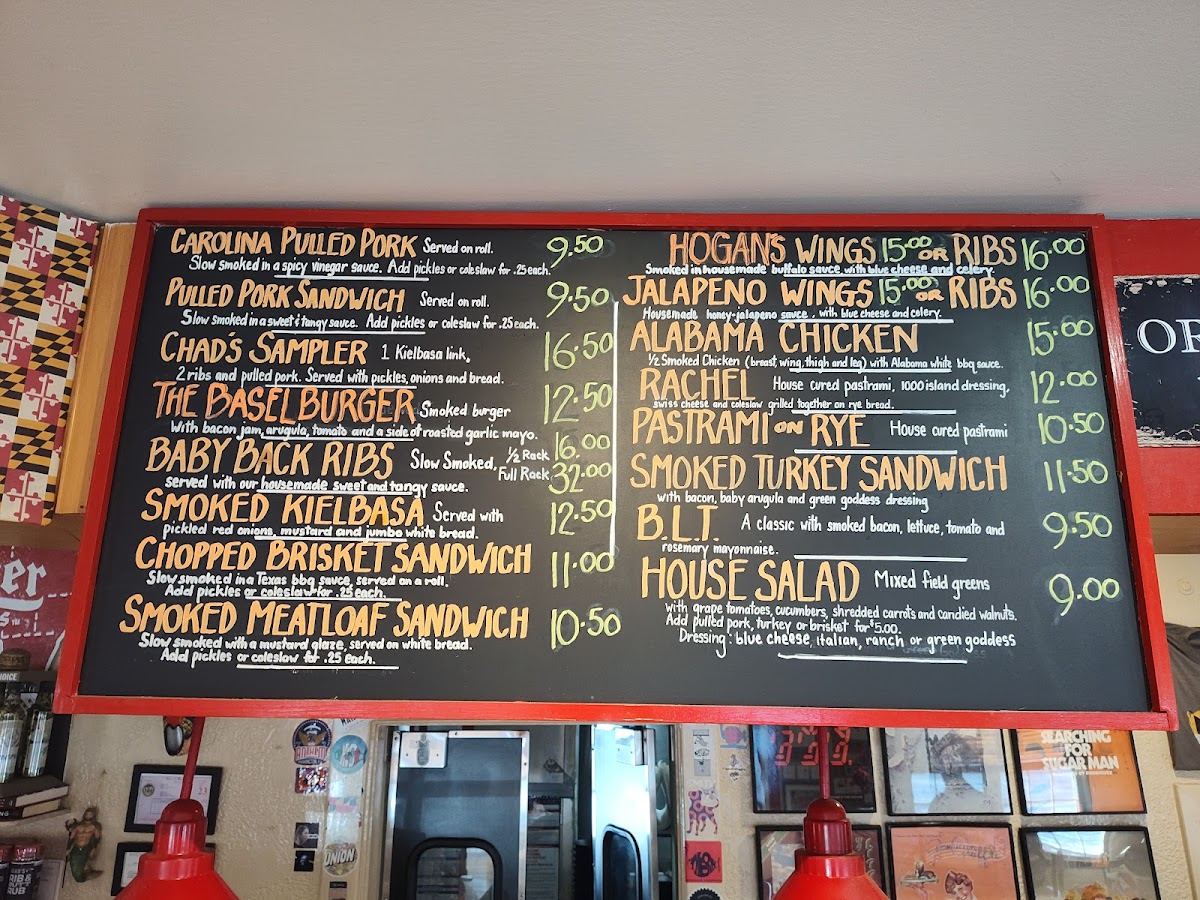 CAROLINA PULLED PORK Served on roll. 9.50
Slow smoked in a spicy vinegar sauce. Add pickles or coleslaw for .25 each.
PULLED PORK SANDWICH Served on roll. 9.50
Slow smoked in a sweet & tangy sauce. Add pickles or coleslaw for .25 each.
CHAD'S SAMPLER 1 Kielbasa link, 16.50
2 ribs and pulled pork. Served with pickles, onions and bread.
THE BASEL BURGER Smoked burger 12.50
With bacon jam, arugula, tomato and a side of roasted garlic mayo.
BABY BACK RIBS Slow Smoked, 1/2 Rack 16.00
served with our housemade sweet and tangy sauce. Full Rack 32.00
SMOKED KIELBASA Served with 12.50
pickled red onions, mustard and jumbo white bread.
CHOPPED BRISKET SANDWICH 11.00
Slow smoked in a Texas bbq sauce, served on a roll.
Add pickles or coleslaw for .25 each.
SMOKED MEATLOAF SANDWICH 10.50
Slow smoked with a mustard glaze, served on white bread.
Add pickles or coleslaw for .25 each.
HOGAN'S WINGS 15.00 OR RIBS 16.00
Smoked in housemade buffalo sauce with blue cheese and celery.
JALAPENO WINGS 15.00 OR RIBS 16.00
Housemade honey-jalapeno sauce, with blue cheese and celery.
ALABAMA CHICKEN 15.00
1/2 Smoked Chicken (breast, wing, thigh and leg) with Alabama white bbq sauce.
RACHEL House cured pastrami, 1000 island dressing, 12.00
swiss cheese and coleslaw grilled together on rye bread.
PASTRAMI ON RYE House cured pastrami 10.50
SMOKED TURKEY SANDWICH 11.50
with bacon, baby arugula and green goddess dressing
B.L.T. A classic with smoked bacon, lettuce, tomato and 9.50
rosemary mayonnaise.
HOUSE SALAD Mixed field greens 9.00
with grape tomatoes, cucumbers, shredded carrots and candied walnuts.
Add pulled pork, turkey or brisket for $5.00.
Dressing: blue cheese, italian, ranch or green goddess
OR
UNION
SEARCHING
FOR
SUGAR MAN
RUB